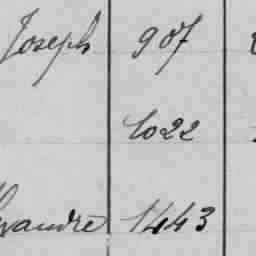 Joseph 907
1022
exandre 1443